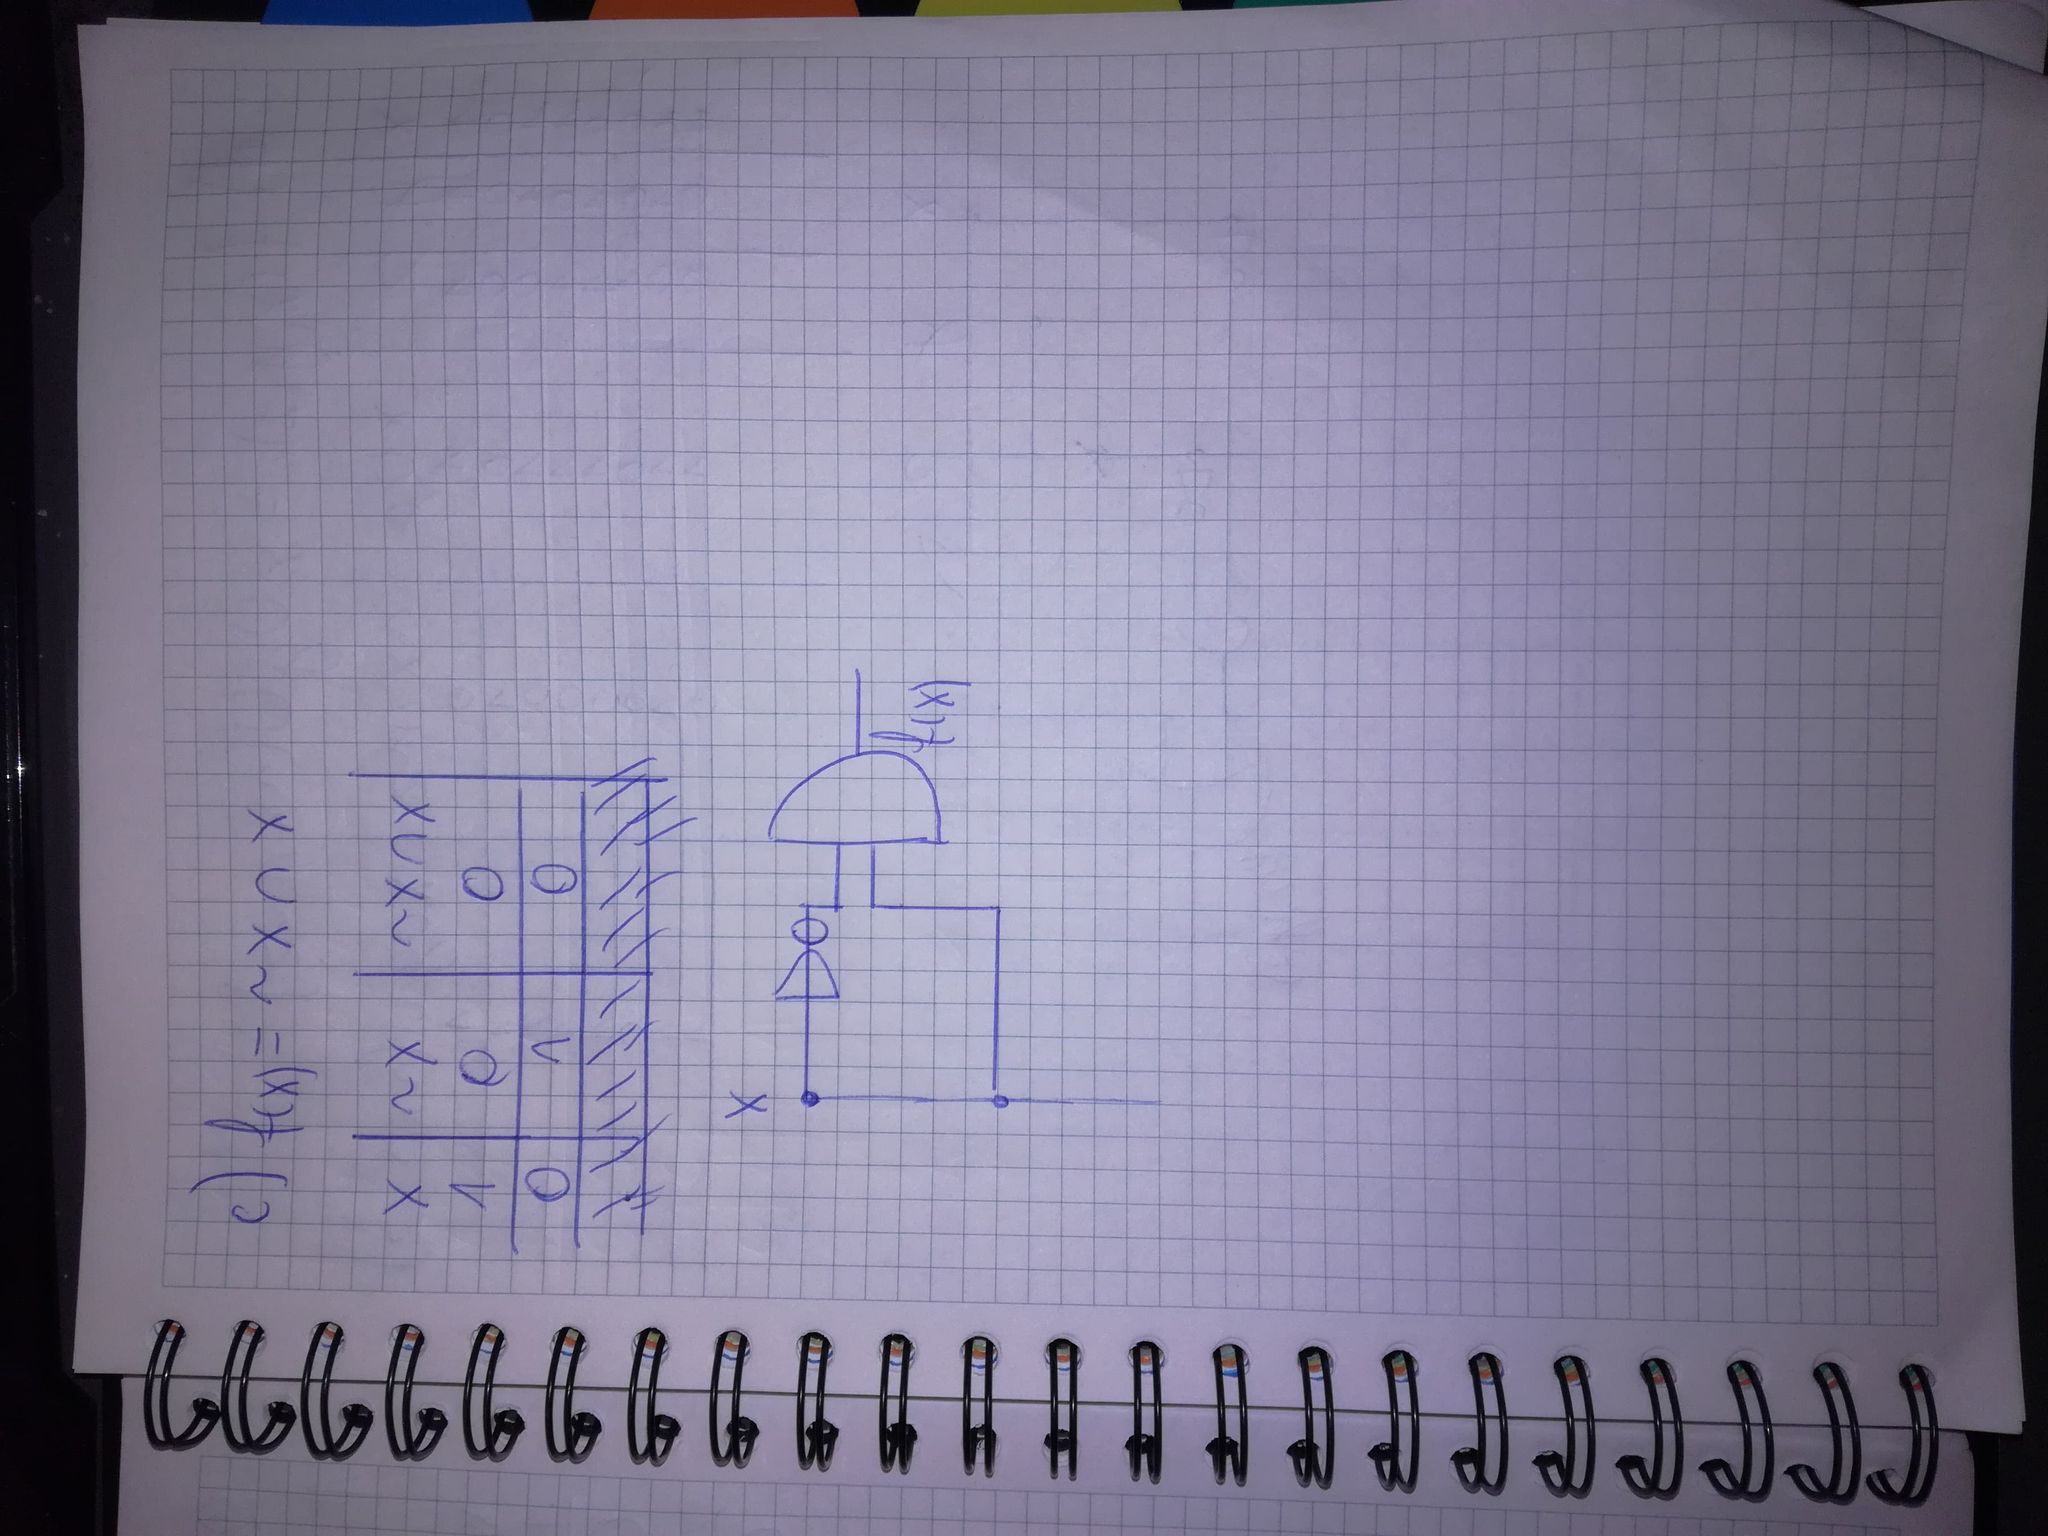 c) f(x) = ~x ∩ x
x ~x ~x ∩ x
1 0 0
0 1 0
x
f(x)